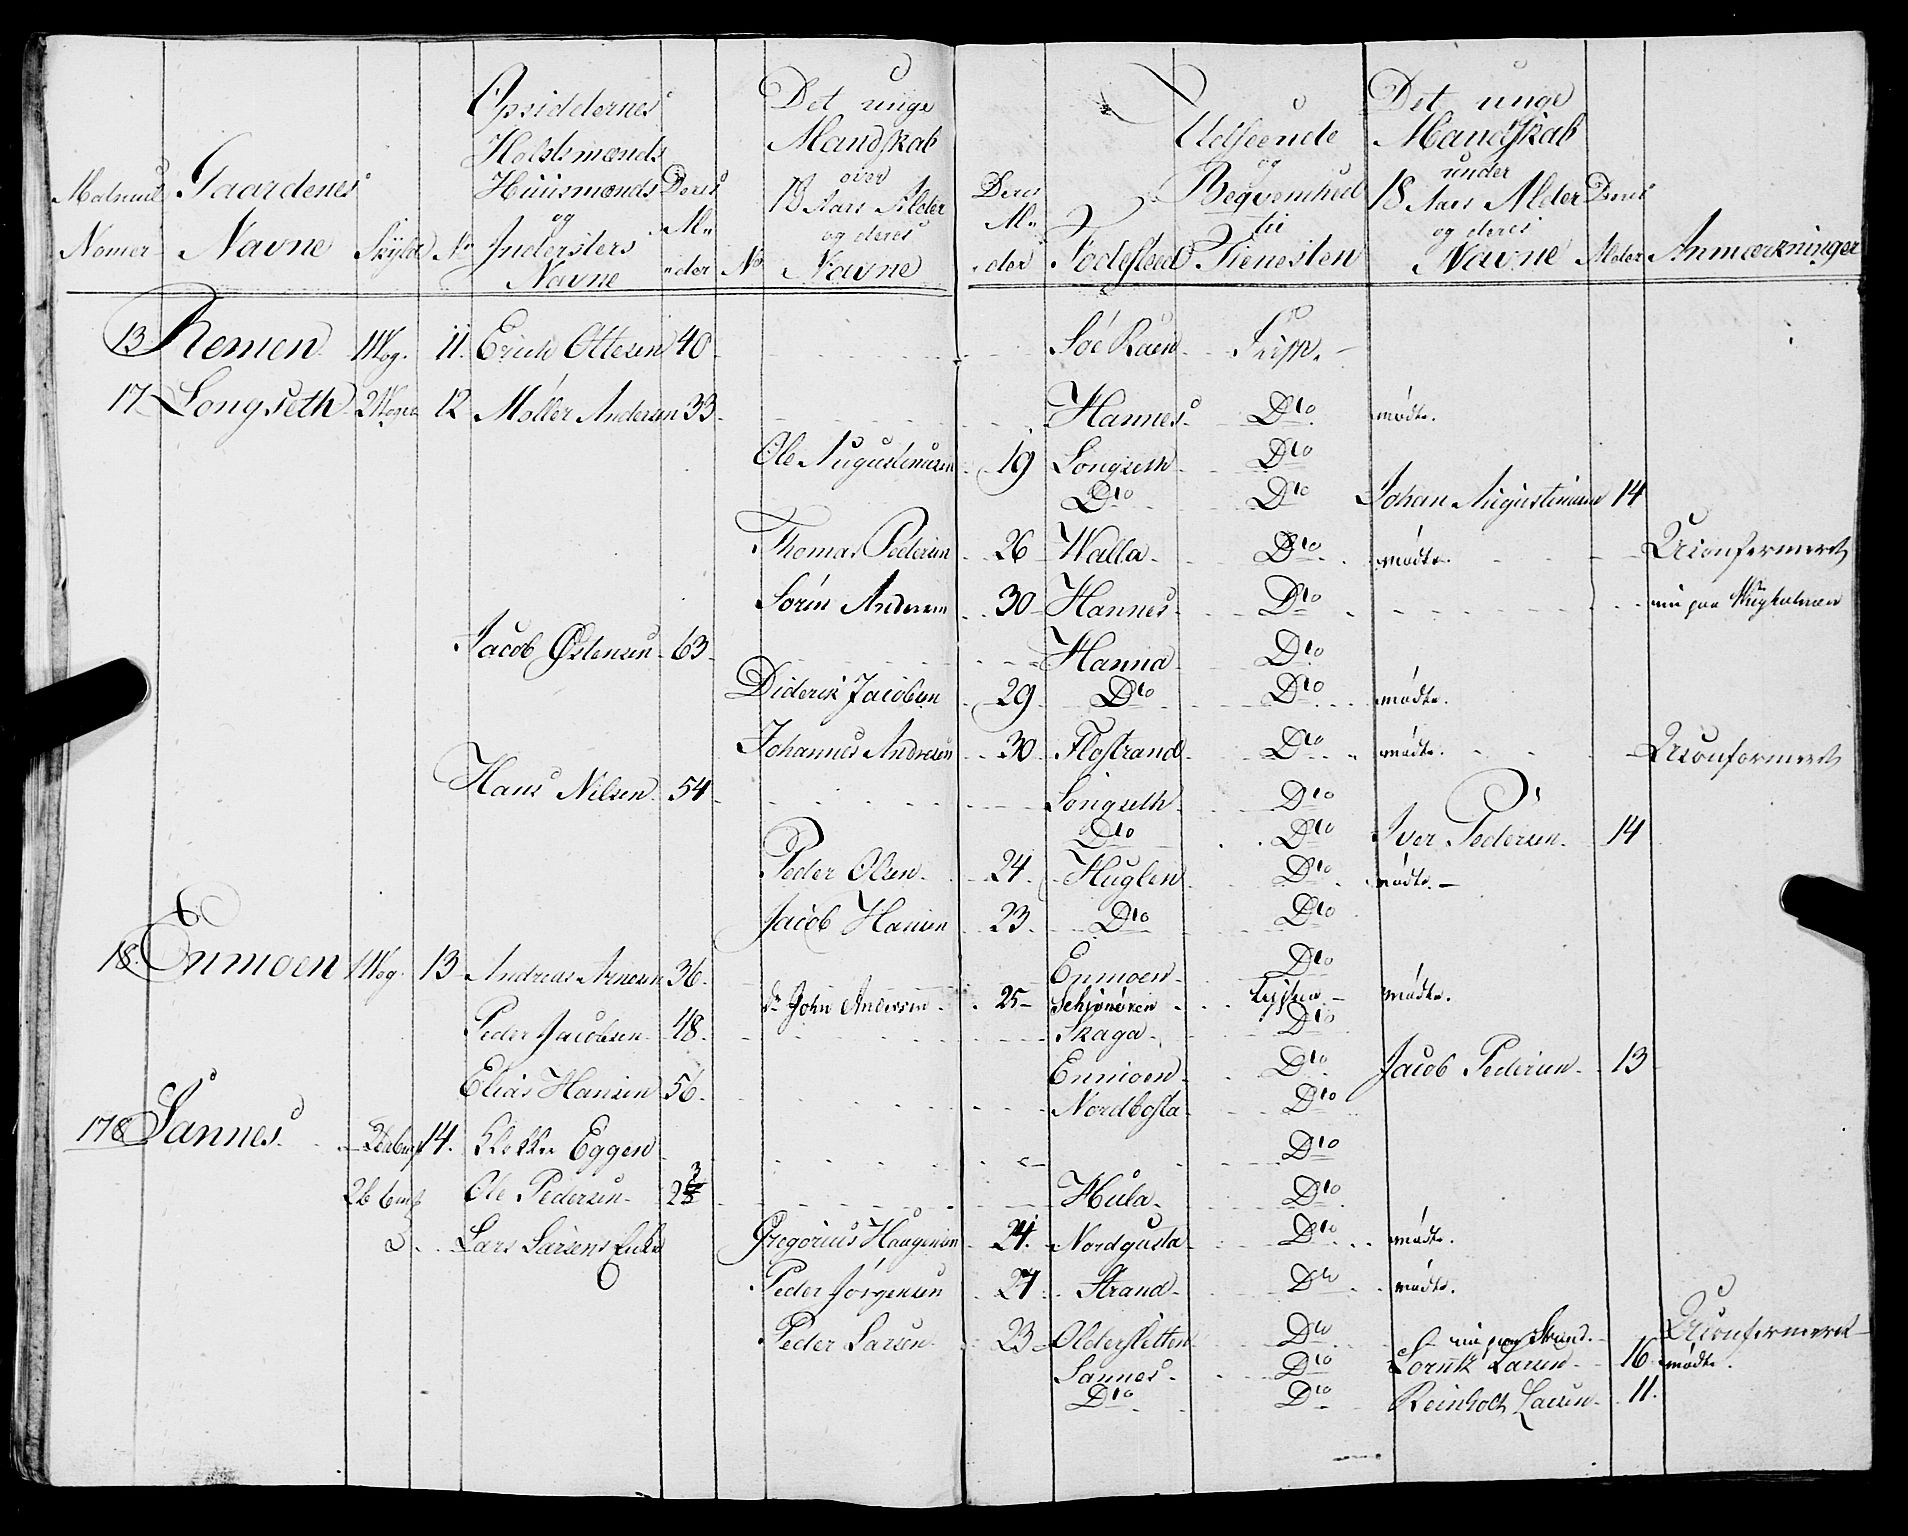 Matricul Nomer
Gaardenes Navne
Skyld
No
Opsiddernes Holdsmænds Huusmænds og Indersters Navne
Deres Al der
No
Det unge Mandskab over 18 Aars Alder og deres Navne
Deres Al der
Fødesteed
Udseende og Beqvemhed til Tienesten
Det unge Mandskab under 18 Aars Alder og deres Navne
Deres Alder
Anmærkninger
13 Remen 1 Wog. 11. Erich Ottesen 40 Søe Raen
17 Longseth 2 Woger 12 Møller Andersen 33 Hannes Dto mødte.
Ole Augustinusen 19 Longseth Dto
Dto Dto Johan Augustinusen 14
Thomas Pedersen 26 Walla Dto mødte. Uconfermeret
Søren Andersen 30 Hannes Dto nu paa Hugholmen
Jacob Østensen 63 Hanna Dto
Diderik Jacobsen 29 Dto Dto mødte.
Johannes Andresen 30 Flostrand Dto mødte. Uconformeret
Hans Nilsen 54 Longseth Dto
Dto Dto Iver Pedersen 14
Peder Olsen 24 Huglen Dto mødte.
Jacob Hansen 23 Dto Dto
18. Enmoen 1 Wog. 13 Andreas Arnesen 36 Enmoen Dto
John Andersen 25 Schionøren mødte.
Peder Jacobsen 48 Skaga Dto
Enmoen Dto Jacob Pedersen 13
Elias Hansen 56 Nordbosta Dto
178 Sannes 14. Klokker Eggen Dto
Ole Pedersen Hula Dto
Lars Larsens Enke Gregorius Haagensen 24. Nordgusta Dto mødte.
Peder Jørgensen 27 Strand Dto mødte.
Peder Larsen 23 Oldersletten Dto nu paa Strand. Uconfermeret
Sannes Dto Lorntz Larsen 16 mødte.
Dto Dto Reinholt Larsen 11.